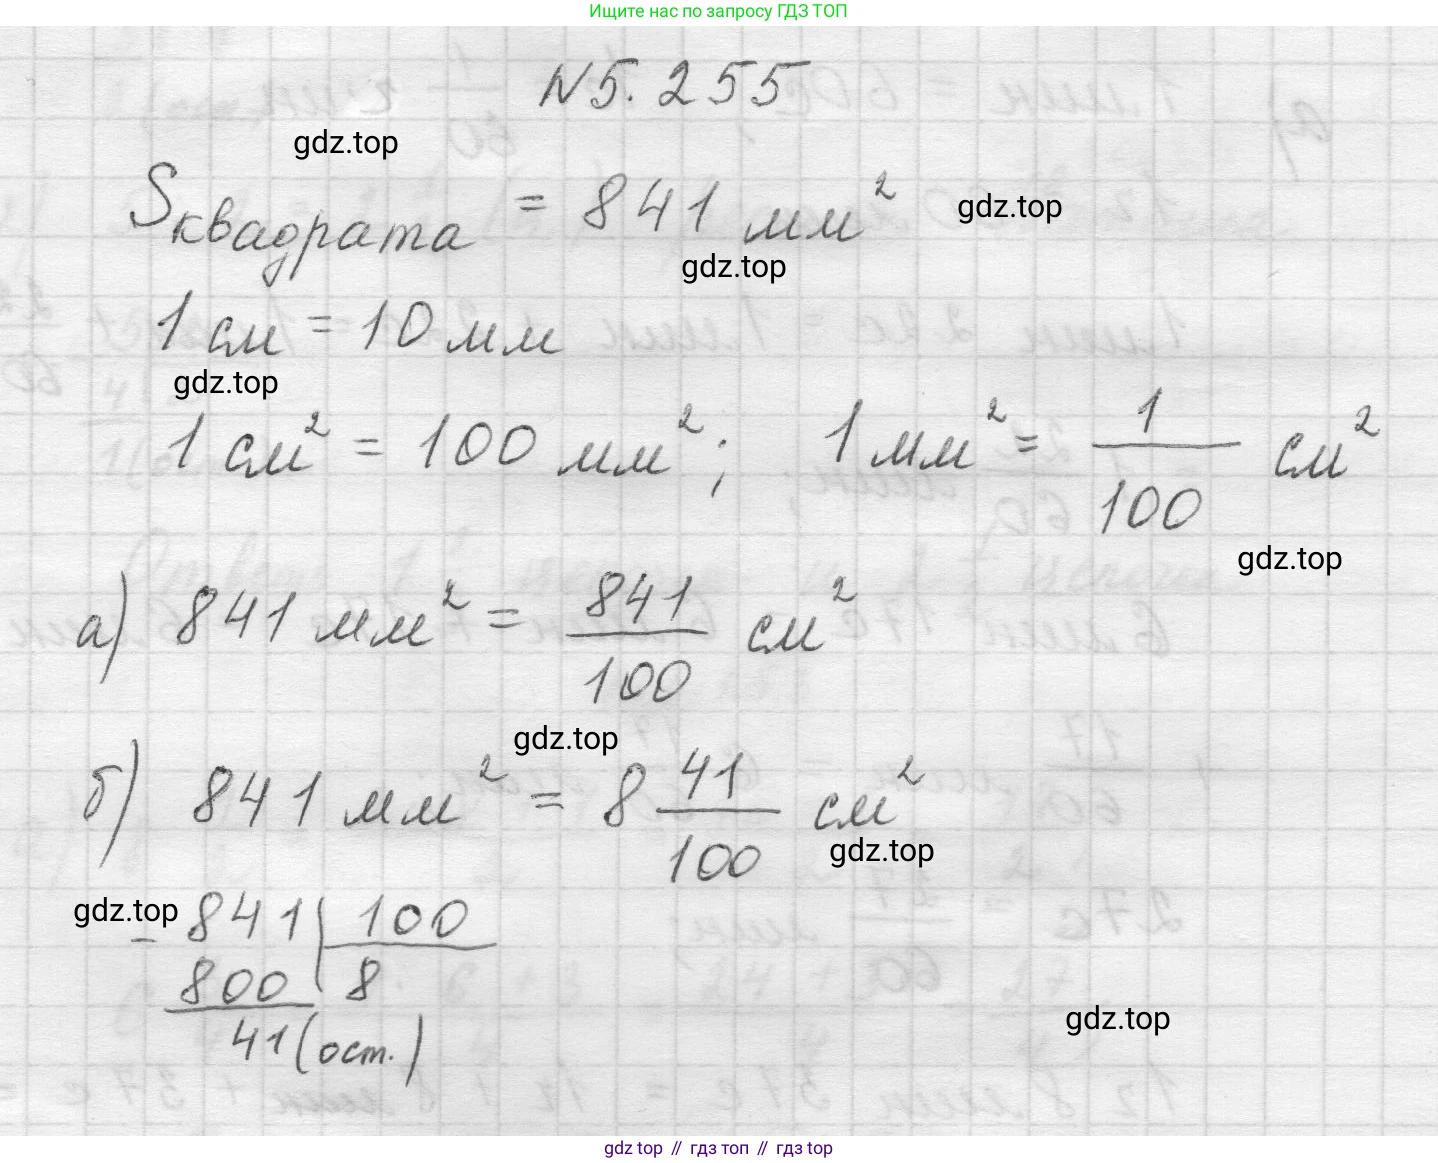 Ищите нас по запросу ГДЗ ТОП
N5.255
gdz.top
Sквадрата = 841 мм² gdz.top
gdz.top
1 см = 10 мм
gdz.top
1 см² = 100 мм²; 1 мм² = 1/100 см²
gdz.top
а) 841 мм² = 841/100 см²
gdz.top
б) 841 мм² = 8 41/100 см²
gdz.top
gdz.top
- 841 | 100
800 | 8
gdz.top
41 (ост.)
gdz top // гдз топ // гдз top